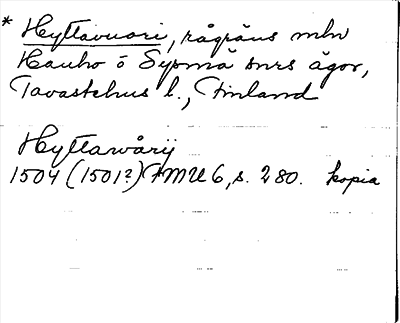 * Hyltavuori, rågräns mln
Hauho o Sysmä snrs ägor,
Tavastehus l., Finland
Hyltawårij
1504 (1501?) FMU 6, s. 280. kopia